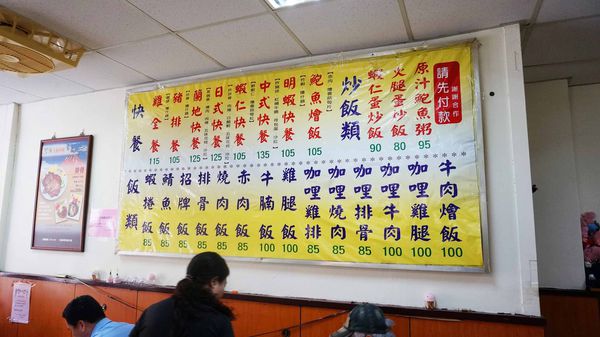 快餐
雞全餐
115
豬排餐
105
蘭地快餐
125
日式快餐
105
蝦仁快餐
105
中式快餐
135
明蝦快餐
105
鮑魚燴飯
105
炒飯類
蝦仁蛋炒飯
90
火腿蛋炒飯
80
原汁鮑魚粥
95
請先付款
謝謝合作
飯類
蝦捲飯
85
鯖魚飯
85
招牌飯
85
排骨飯
85
燒肉飯
85
赤肉飯
85
牛腩飯
100
雞腿飯
100
咖哩雞排
85
咖哩燒肉
85
咖哩排骨
85
咖哩牛肉
100
咖哩雞腿
100
牛肉燴飯
100